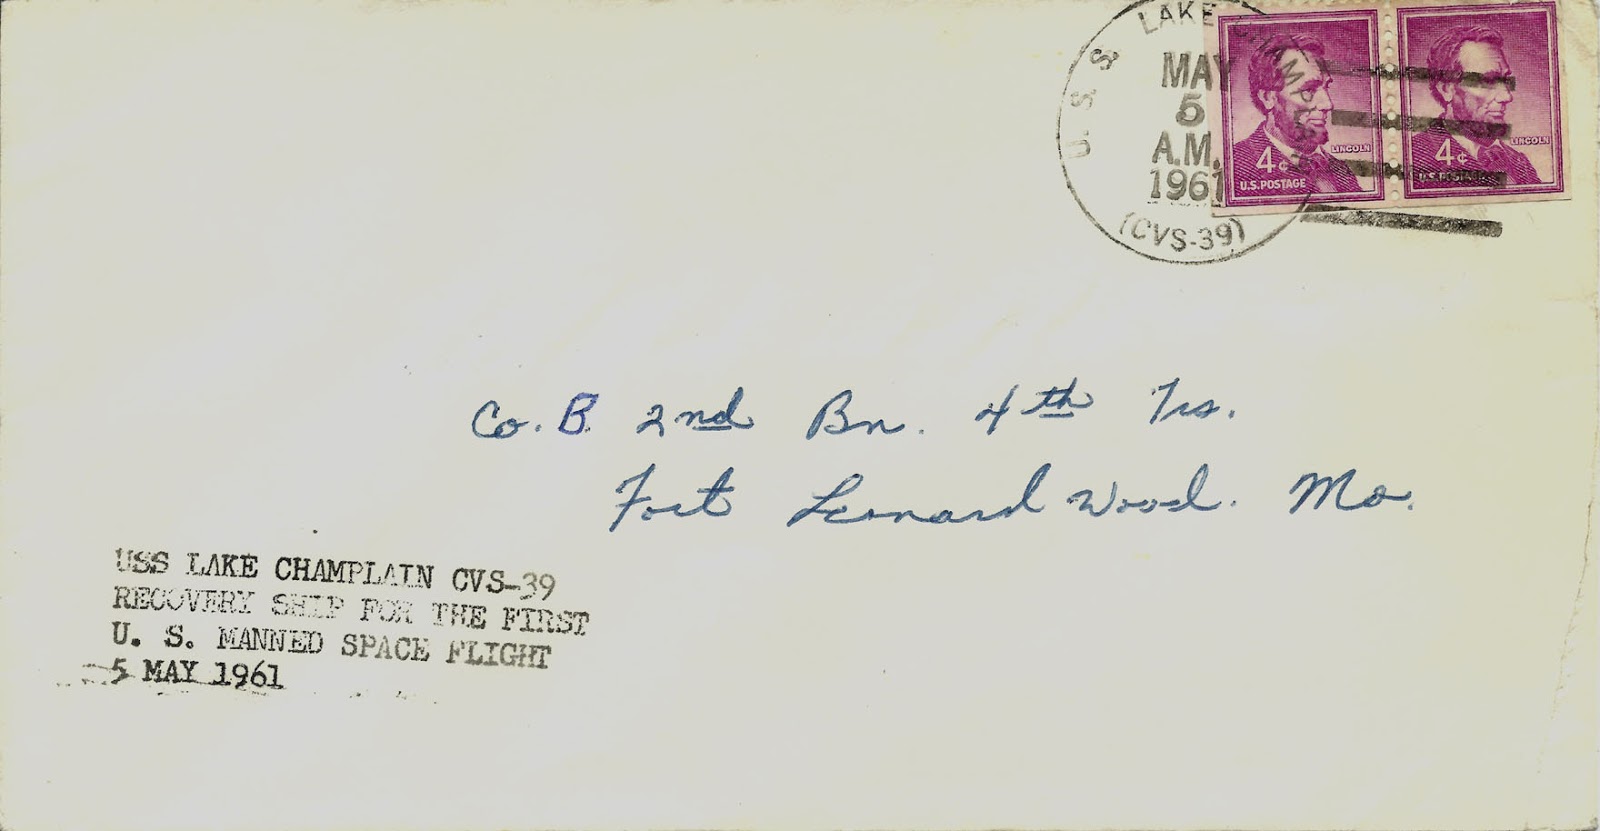 U. S. S. LAKE CHAMPLAIN
MAY
5
A.M.
1961
(CVS-39)
LINCOLN
4¢
U.S.POSTAGE
LINCOLN
4¢
U.S.POSTAGE
Co. B 2nd Bn. 4th Trs.
Fort Leonard Wood. Mo.
USS LAKE CHAMPLAIN CVS-39
RECOVERY SHIP FOR THE FIRST
U. S. MANNED SPACE FLIGHT
5 MAY 1961